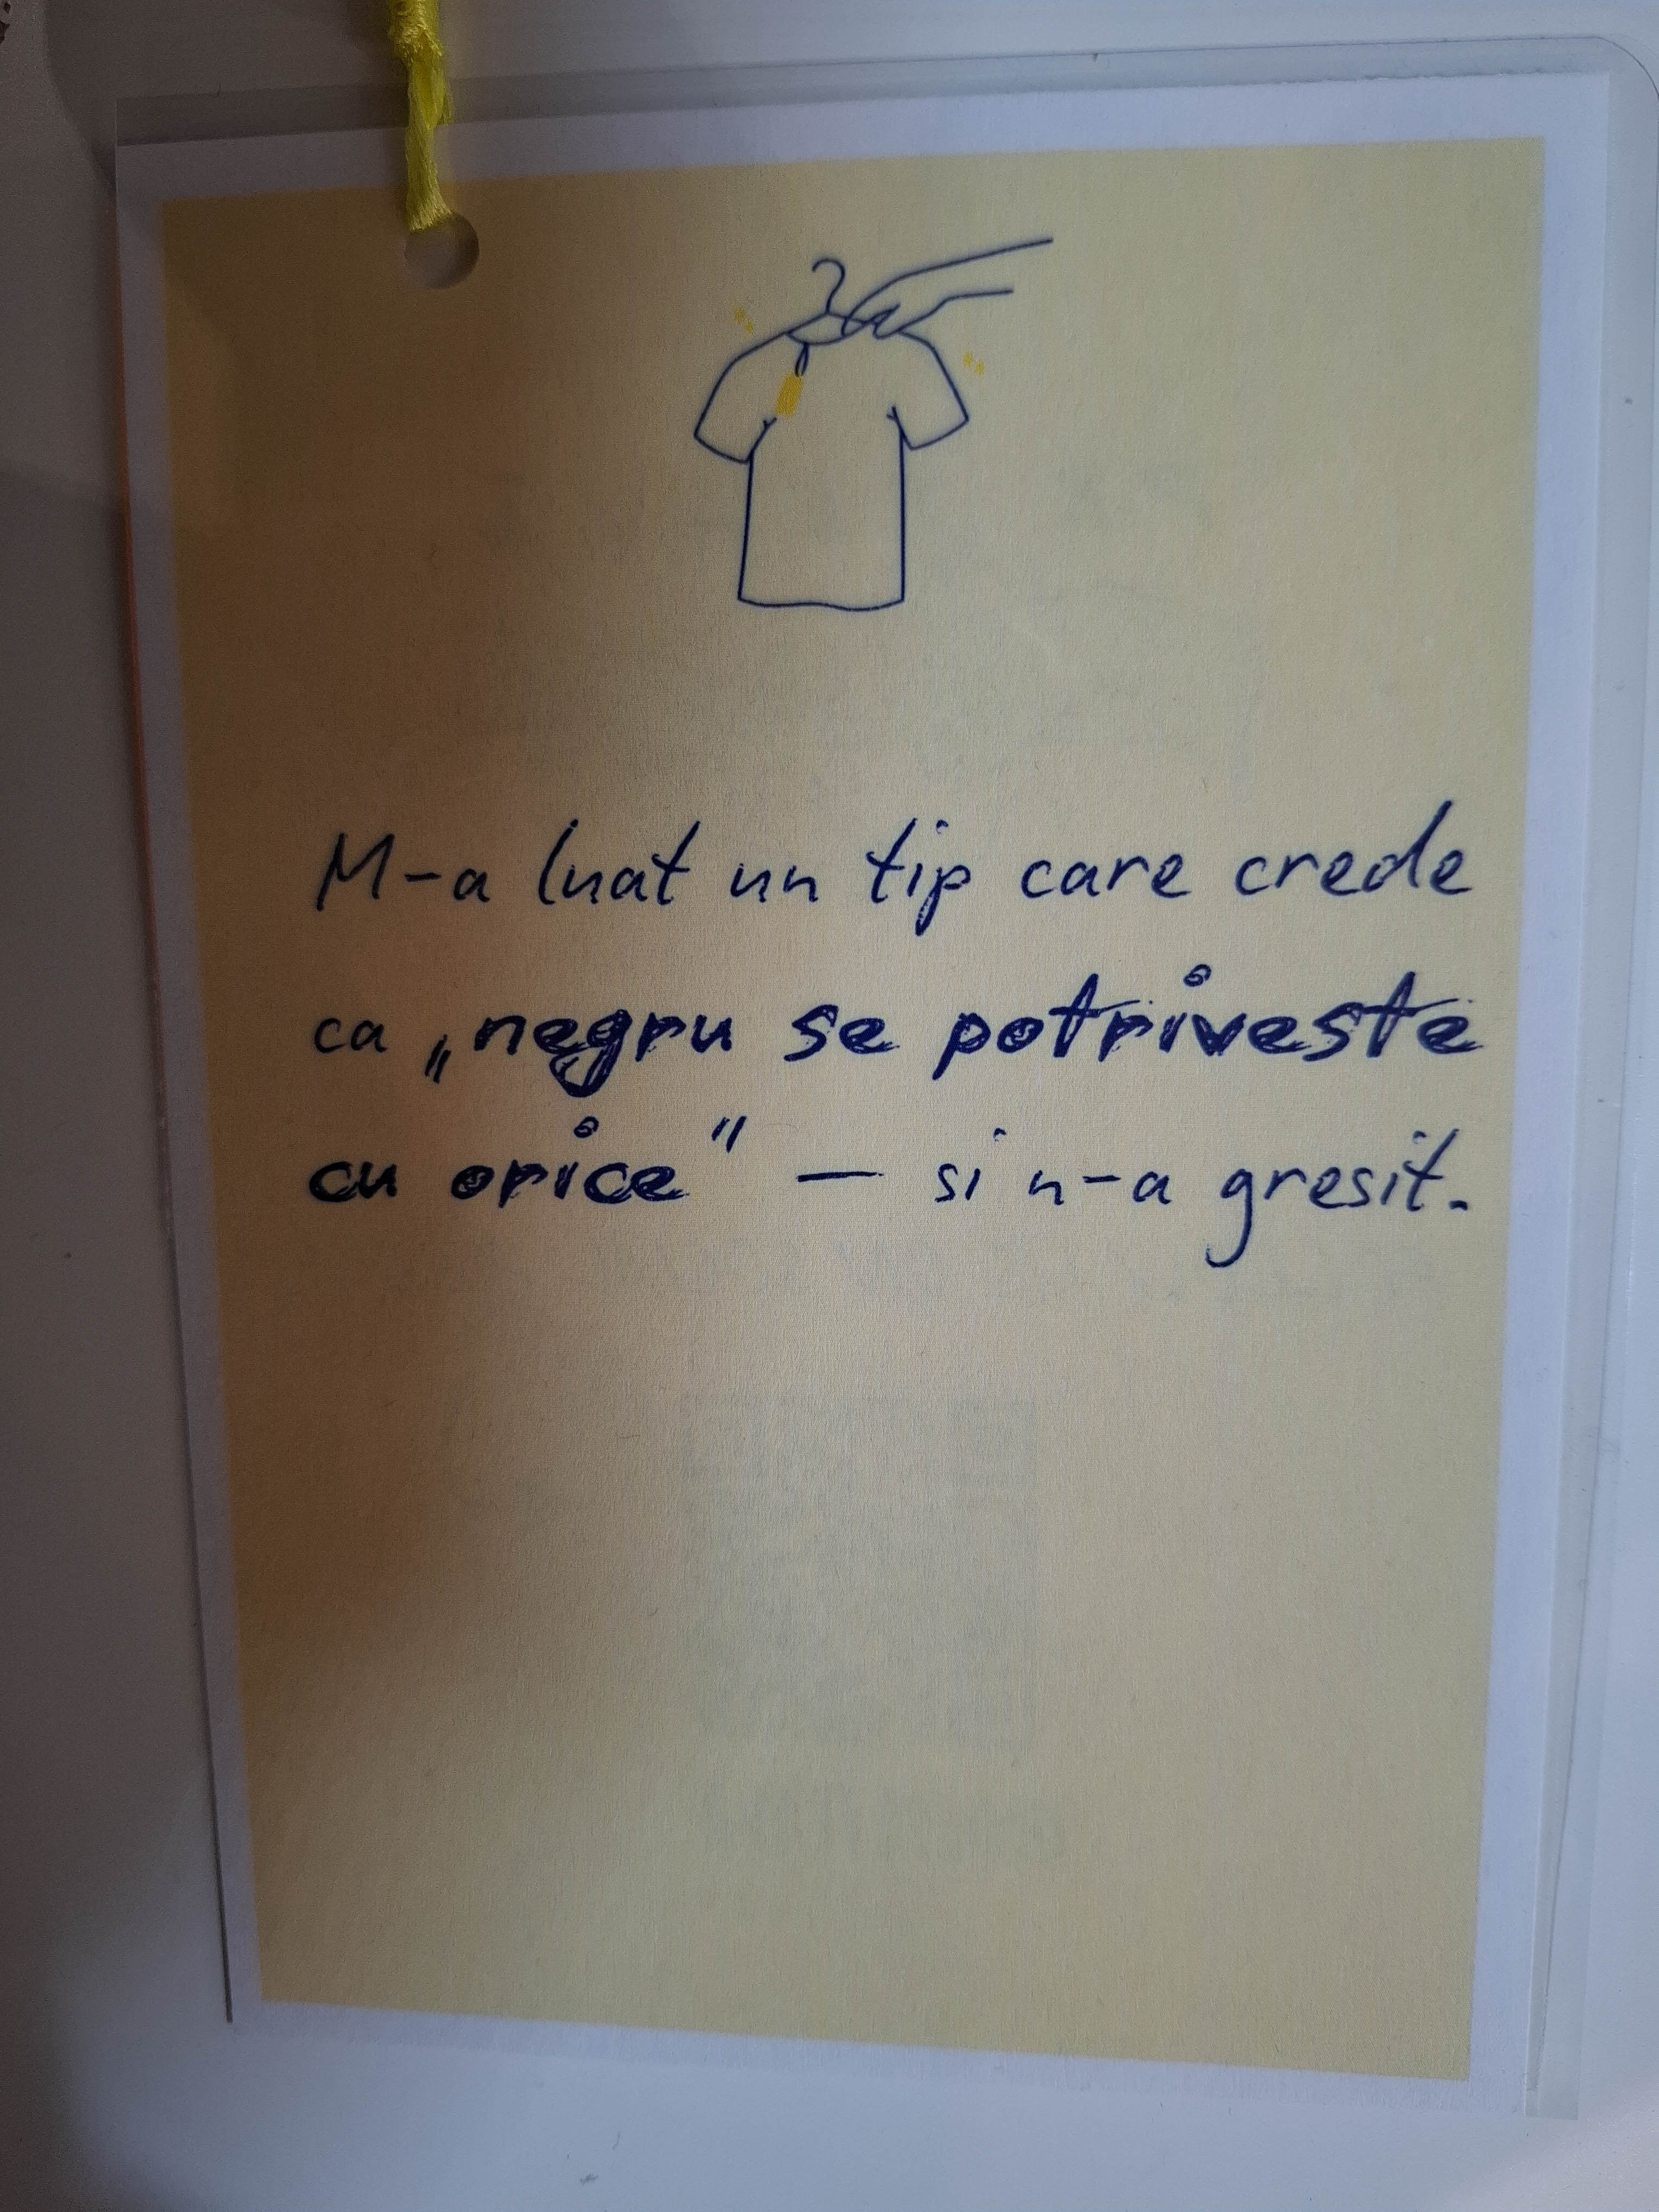 M-a luat un tip care crede
ca „negru se potriveste
cu orice" — si n-a gresit.